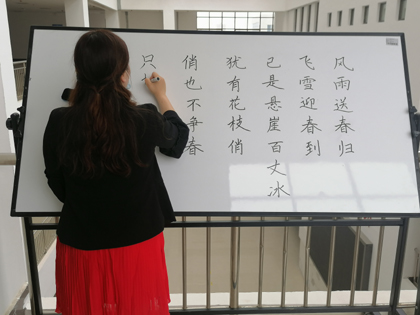 风雨送春归
飞雪迎春到
已是悬崖百丈冰
犹有花枝俏
俏也不争春
只